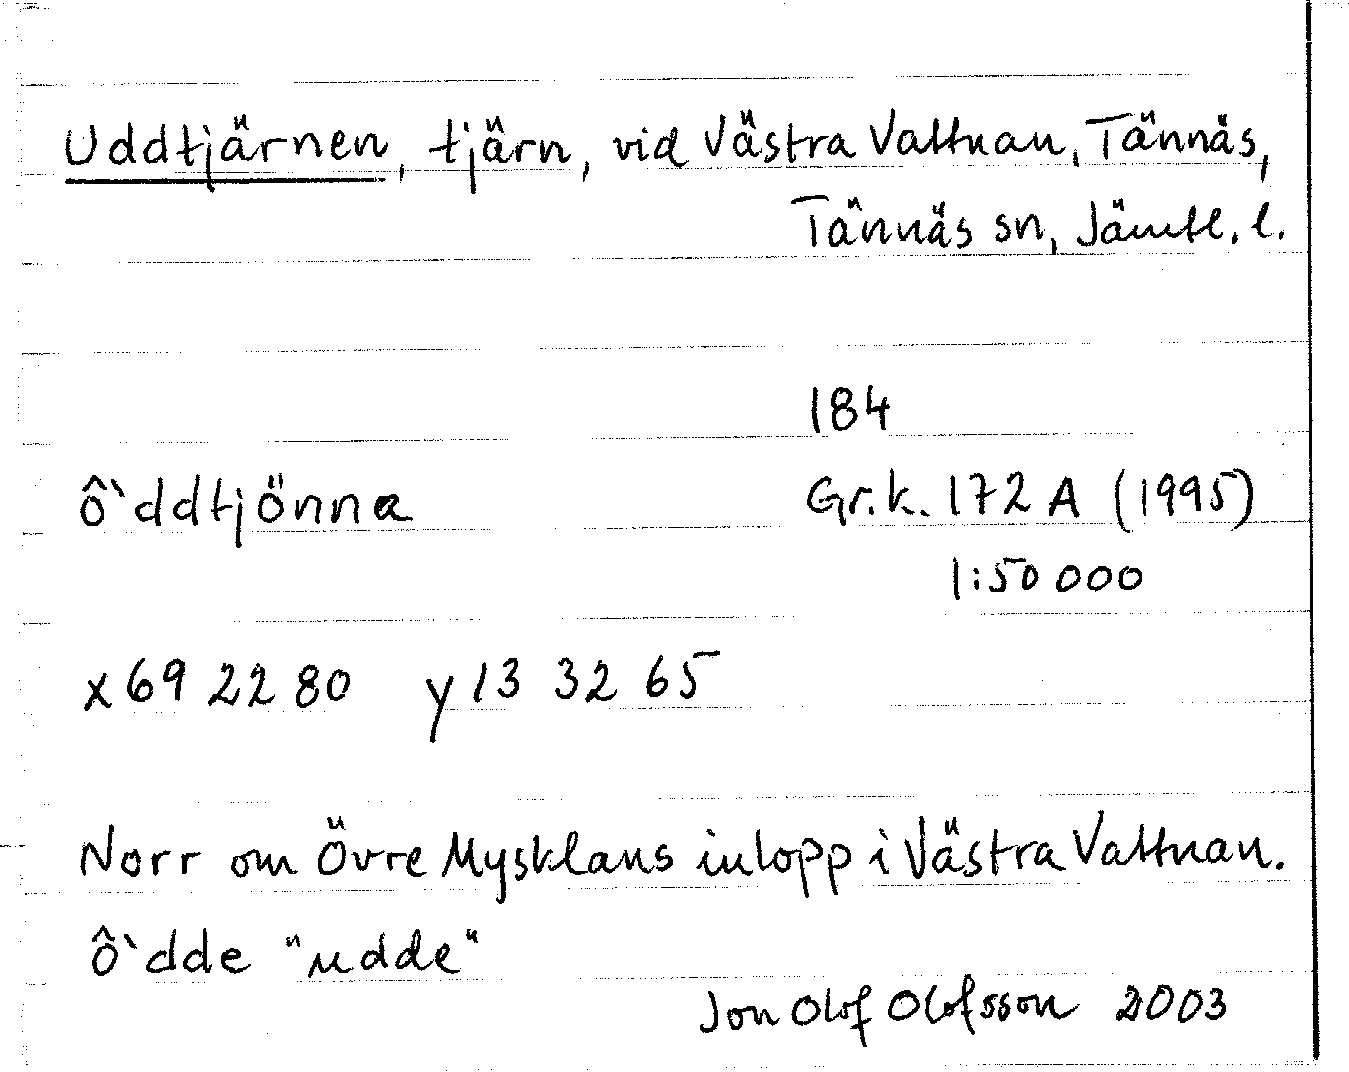 Uddtjärnen, tjärn, vid Västra Vattnan, Tännäs,
Tännäs sn, Jämtl. l.
184
ô`ddtjönna Gr.k. 172 A (1995)
1:50 000
x 69 22 80 y 13 32 65
Norr om Övre Mysklans inlopp i Västra Vattnan.
ô`dde "udde"
Jon Olof Olofsson 2003